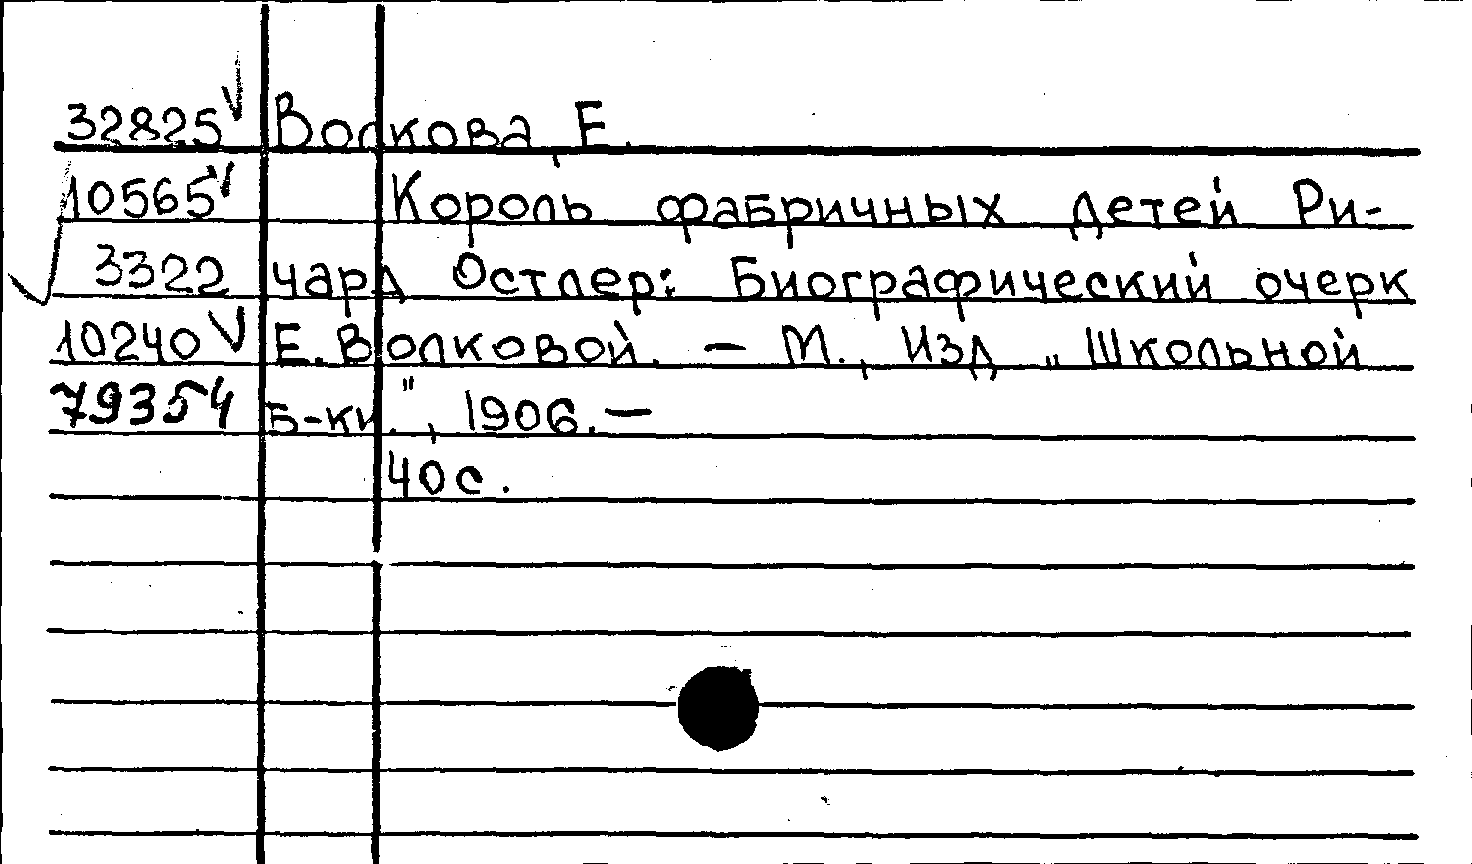 32825 V Волкова, Е.
10565 V Король фабричных детей Ри-
3322 чард Остлер: Биографический очерк
10240 V Е. Волковой. - М., Изд „Школьной
79354 Б-ки.", 1906. -
40 с.